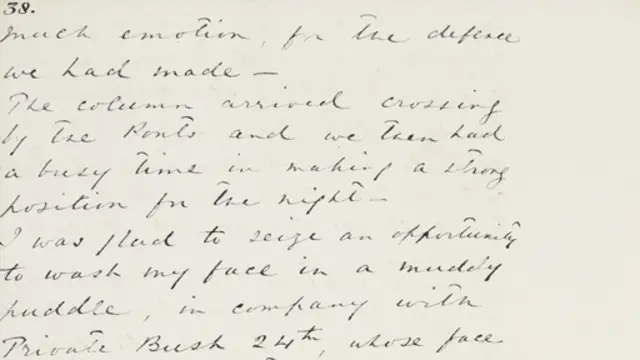 38.
much emotion, for the defence
we had made —
The column arrived crossing
by the Ponts and we then had
a busy time in making a strong
position for the night —
I was glad to seize an opportunity
to wash my face in a muddy
puddle, in company with
Private Bush 24th, whose face